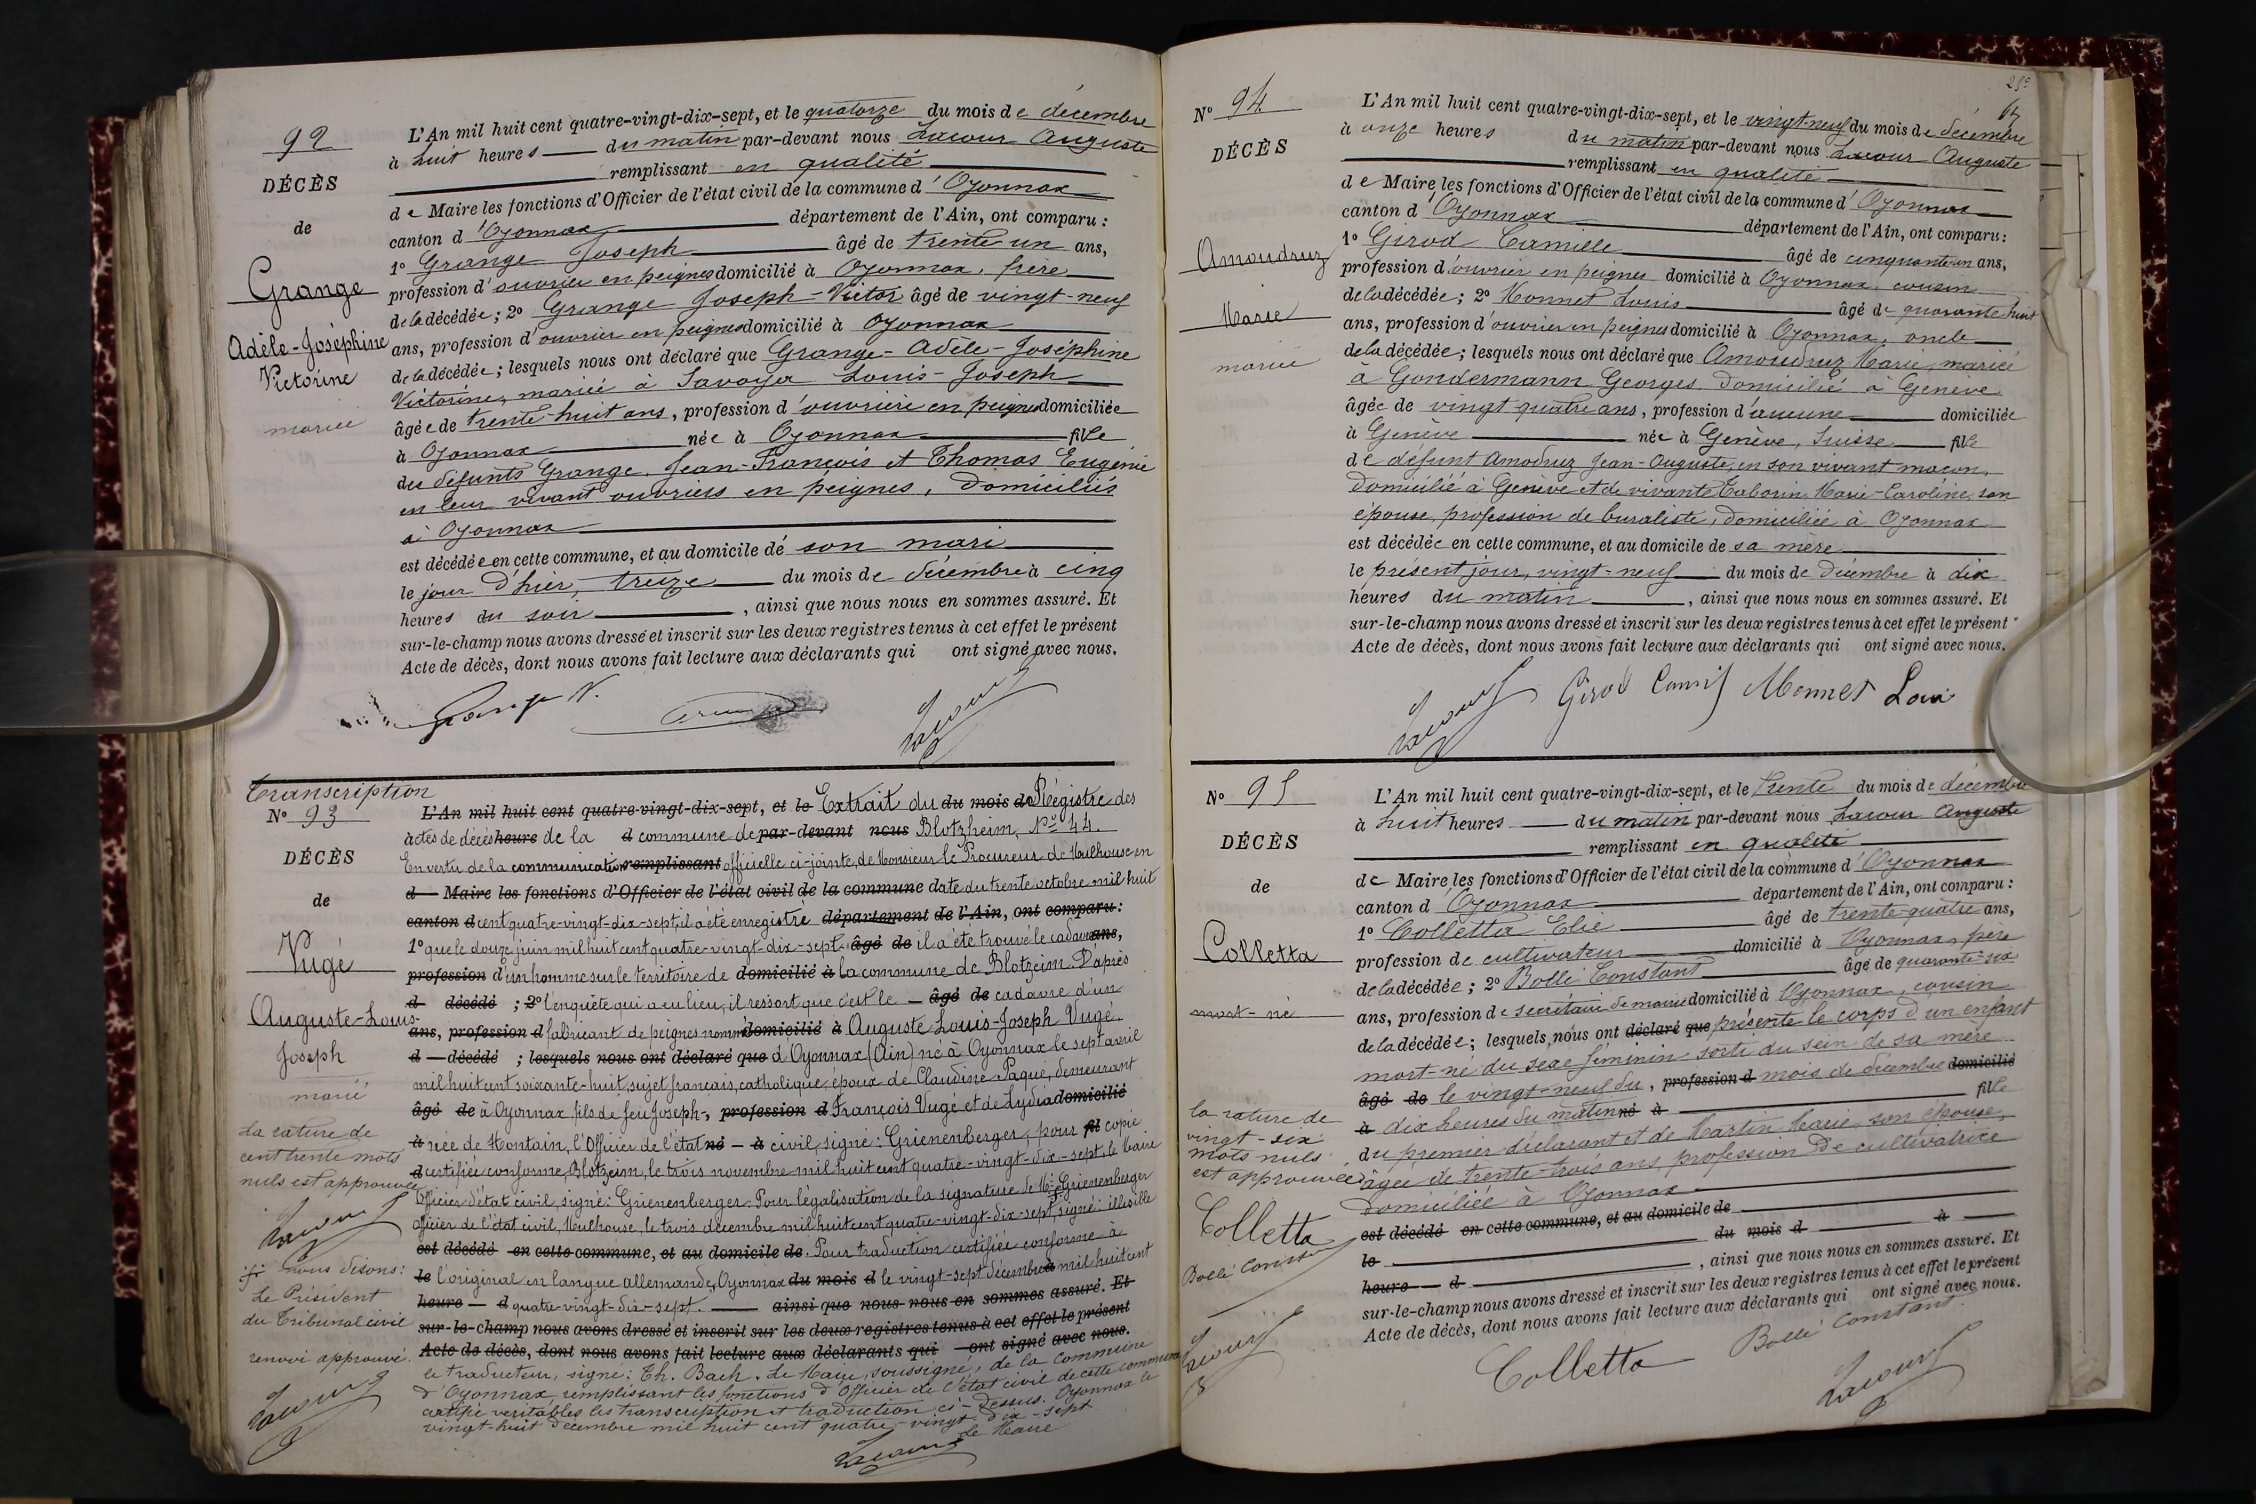 92
DÉCÈS
de
Grange
Adèle-Joséphine
Victorine
mariée
L'An mil huit cent quatre-vingt-dix-sept, et le quatorze du mois de décembre
à huit heures du matin par-devant nous Lacour Auguste
remplissant en qualité
de Maire les fonctions d'Officier de l'état civil de la commune d'Oyonnax
canton d'Oyonnax département de l'Ain, ont comparu :
1º Grange Joseph âgé de trente un ans,
profession d'ouvrier en peignes domicilié à Oyonnax, frère
de la décédée ; 2º Grange Joseph-Victor âgé de vingt-neuf
ans, profession d'ouvrier en peignes domicilié à Oyonnax
de la décédée ; lesquels nous ont déclaré que Grange-Adèle-Joséphine
Victorine, mariée à Savoye Louis-Joseph
âgée de trente-huit ans, profession d'ouvrière en peignes domiciliée
à Oyonnax née à Oyonnax fille
des défunts Grange Jean-François et Thomas Eugénie
en leur vivant ouvriers en peignes, domiciliés
à Oyonnax
est décédée en cette commune, et au domicile de son mari
le jour d'hier, treize du mois de décembre à cinq
heures du soir, ainsi que nous nous en sommes assuré. Et
sur-le-champ nous avons dressé et inscrit sur les deux registres tenus à cet effet le présent
Acte de décès, dont nous avons fait lecture aux déclarants qui ont signé avec nous.
Grange V. Lacour
Transcription
Nº 93
DÉCÈS
de
Vugé
Auguste-Louis-
Joseph
marié
La rature de
cent trente mots
nuls est approuvée
Lacour
nous disons :
Le Président
du Tribunal civil
renvoi approuvé.
Lacour
L'An mil huit cent quatre-vingt-dix-sept, et le Extrait du du mois de Régistre des
actes de décès heure de la d commune de par-devant nous Blotzheim, Nº 44.
En vertu de la communication remplissant officielle ci-jointe, de Monsieur le Procureur de Mulhouse en
d Maire les fonctions d'Officier de l'état civil de la commune date du trente octobre mil huit
canton d cent quatre-vingt-dix-sept, il a été enregistré département de l'Ain, ont comparu :
1º que le douze juin mil huit cent quatre-vingt-dix-sept âgé de il a été trouvé le cadavre ans,
profession d'un homme sur le territoire de domicilié à la commune de Blotzeim. D'après
d décédé ; 2º l'enquête qui a eu lieu, il ressort que c'est le âgé de cadavre d'un
ans, profession d fabricant de peignes nommé domicilié à Auguste Louis-Joseph Vugé
d décédé ; lesquels nous ont déclaré que d'Oyonnax (Ain) né à Oyonnax le sept avril
mil huit cent soixante-huit, sujet français, catholique, époux de Claudine Pagué, demeurant
âgé de à Oyonnax fils de feu Joseph-, profession d François Vugé et de Lydia domicilié
à née de Montain, l'Officier de l'état né à civil, signé : Grienenberger, pour fil copie
d certifiée conforme, Blotzeim, le trois novembre mil huit cent quatre-vingt-dix-sept, le Maire
Officier d'état civil, signé : Grienenberger. Pour légalisation de la signature de Mr Grienenberger
officier de l'état civil, Mulhouse, le trois décembre mil huit cent quatre-vingt-dix-sept, signé : illisible
est décédé en cette commune, et au domicile de. Pour traduction certifiée conforme à
le l'original en langue allemande, Oyonnax du mois d le vingt-sept décembre à mil huit cent
heure d quatre-vingt-dix-sept. ainsi que nous nous en sommes assuré. Et
sur-le-champ nous avons dressé et inscrit sur les deux registres tenus à cet effet le présent
Acte de décès, dont nous avons fait lecture aux déclarants qui ont signé avec nous.
le traducteur, signé : Th. Bach. Le Maire, soussigné, de la commune
d'Oyonnax remplissant les fonctions d'Officier de l'état civil de cette commune
certifie véritables les transcription et traduction ci-dessus. Oyonnax le
vingt-huit décembre mil huit cent quatre-vingt-dix-sept
Le Maire
Lacour
Nº 94
DÉCÈS
Amoudruz
Marie
mariée
L'An mil huit cent quatre-vingt-dix-sept, et le vingt-neuf du mois de décembre
à onze heures du matin par-devant nous Lacour Auguste
remplissant en qualité
de Maire les fonctions d'Officier de l'état civil de la commune d'Oyonnax
canton d'Oyonnax département de l'Ain, ont comparu :
1º Girod Camille âgé de cinquante un ans,
profession d'ouvrier en peignes domicilié à Oyonnax cousin
de la décédée ; 2º Monnet Louis âgé de quarante huit
ans, profession d'ouvrier en peignes domicilié à Oyonnax, oncle
de la décédée ; lesquels nous ont déclaré que Amoudruz Marie, mariée
à Gondermann Georges domicilié à Genève
âgée de vingt quatre ans, profession d'aucune domiciliée
à Genève née à Genève, Suisse fille
de défunt Amodruz Jean-Auguste, en son vivant maçon,
domicilié à Genève et de vivante Taborin Marie-Caroline son
épouse, profession de buraliste, domiciliée à Oyonnax
est décédée en cette commune, et au domicile de sa mère
le présent jour, vingt-neuf du mois de décembre à dix
heures du matin, ainsi que nous nous en sommes assuré. Et
sur-le-champ nous avons dressé et inscrit sur les deux registres tenus à cet effet le présent
Acte de décès, dont nous avons fait lecture aux déclarants qui ont signé avec nous.
Lacour Girod Camil Monnet Loui
Nº 95
DÉCÈS
de
Colletta
mort-né
la rature de
vingt-six
mots nuls
est approuvée
Colletta
Bollé Constant
Lacour
L'An mil huit cent quatre-vingt-dix-sept, et le trente du mois de décembre
à huit heures du matin par-devant nous Lacour Auguste
remplissant en qualité
de Maire les fonctions d'Officier de l'état civil de la commune d'Oyonnax
canton d'Oyonnax département de l'Ain, ont comparu :
1º Colletta Elie âgé de trente-quatre ans,
profession de cultivateur domicilié à Oyonnax, père
de la décédée ; 2º Bollé Constant âgé de quarante-six
ans, profession de secrétaire de mairie domicilié à Oyonnax, cousin
de la décédée ; lesquels nous ont déclaré que présenté le corps d'un enfant
mort-né du sexe féminin sorti du sein de sa mère
âgé de le vingt-neuf du, profession d mois de décembre domicilié
à dix heures du matin né à fille
du premier déclarant et de Martin Marie, son épouse,
âgée de trente-trois ans, profession de cultivatrice
domiciliée à Oyonnax
est décédé en cette commune, et au domicile de
le du mois d à
heure d, ainsi que nous nous en sommes assuré. Et
sur-le-champ nous avons dressé et inscrit sur les deux registres tenus à cet effet le présent
Acte de décès, dont nous avons fait lecture aux déclarants qui ont signé avec nous.
Colletta Bollé Constant
Lacour